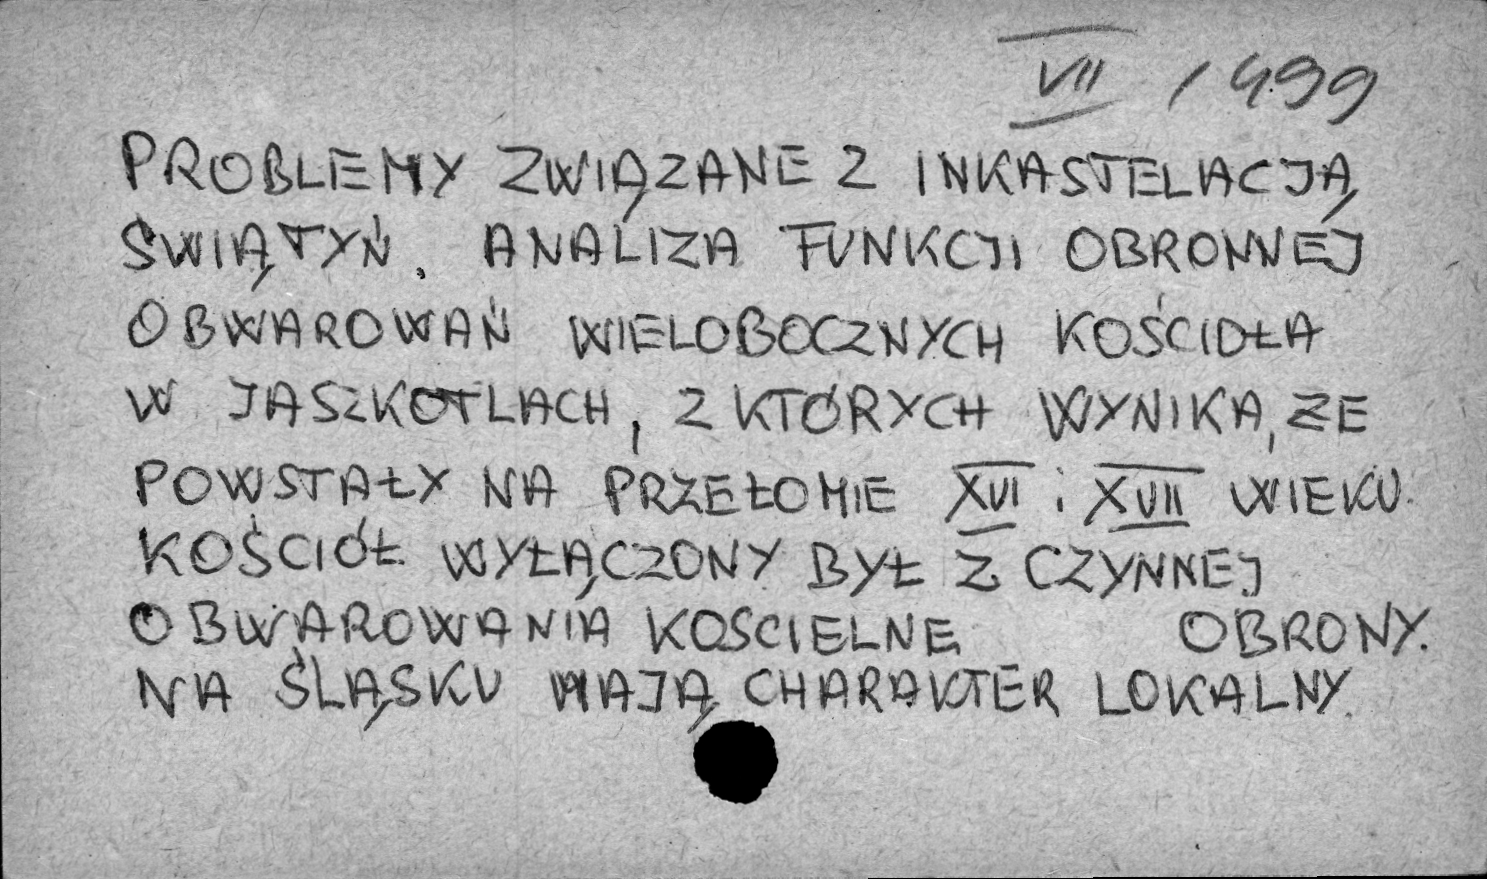 VII / 499
PROBLEMY ZWIĄZANE Z INKASTELACJĄ
ŚWIĄTYŃ. ANALIZA FUNKCJI OBRONNEJ
OBWAROWAŃ WIELOBOCZNYCH KOŚCIOŁA
W JASZKOTLACH, Z KTÓRYCH WYNIKA, ŻE
POWSTAŁY NA PRZEŁOMIE XVI i XVII WIEKU.
KOŚCIÓŁ WYŁĄCZONY BYŁ Z CZYNNEJ
OBWAROWANIA KOSCIELNE OBRONY.
NA ŚLĄSKU MAJĄ CHARAKTER LOKALNY.